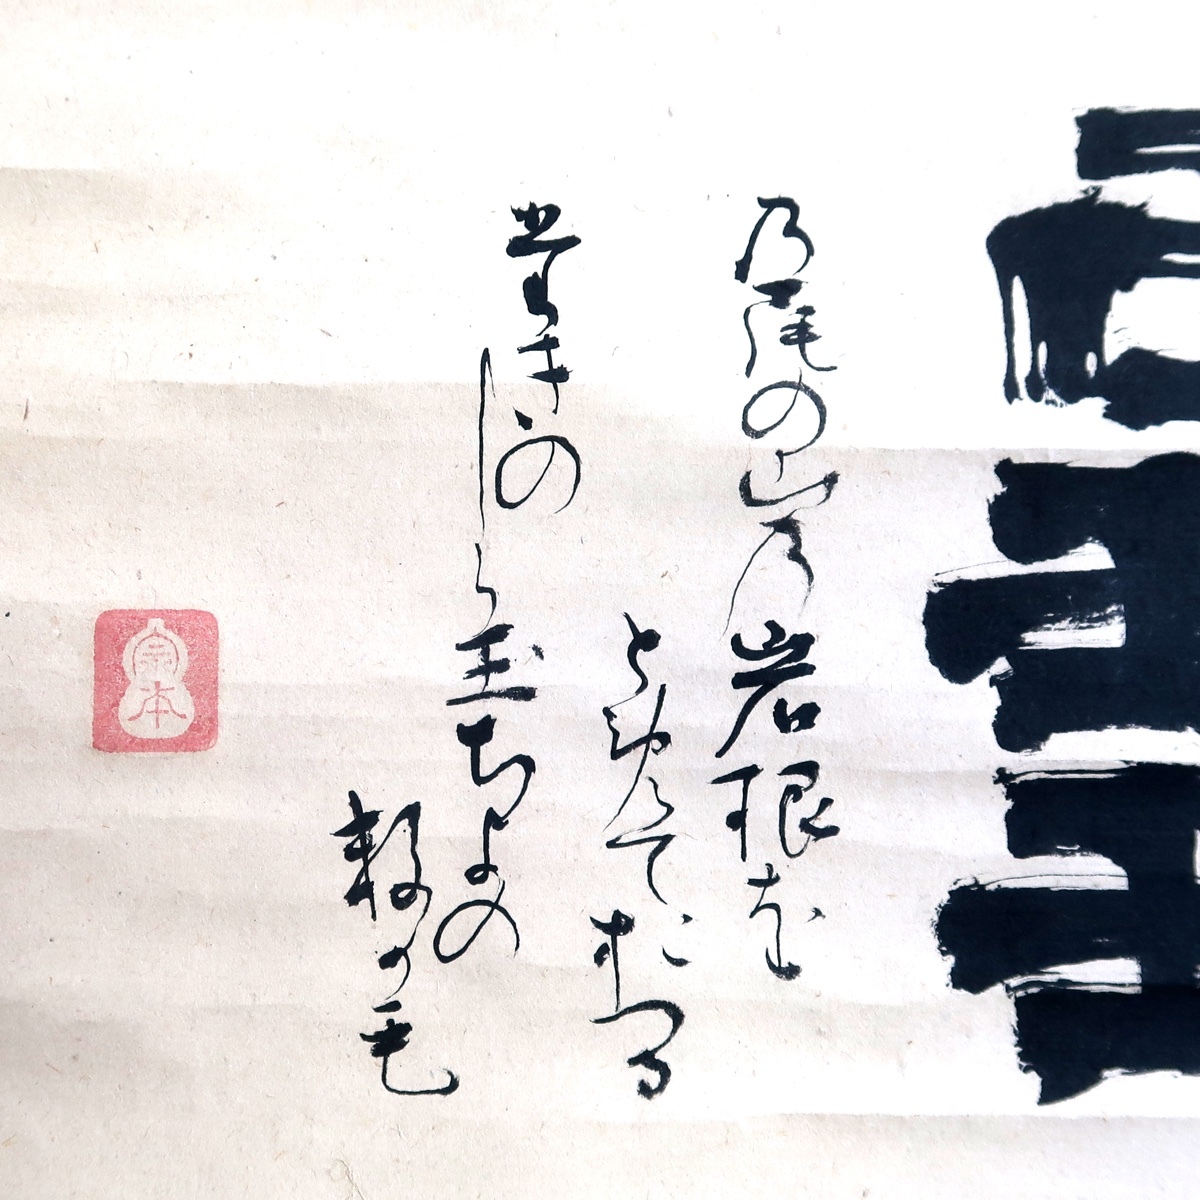 乃尾の山乃岩根を
とめておつる
堂きの
しら玉ちよの
数可毛
宗本